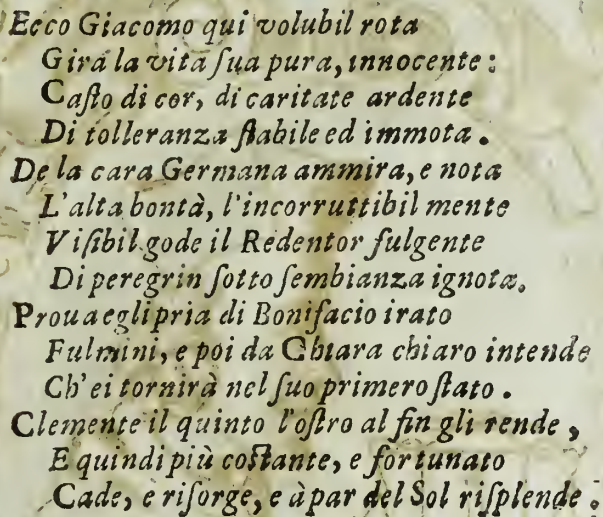 Ecco Giacomo qui volubil rota
Gira la vita ſua pura, innocente:
Caſto di cor, di caritate ardente
Di tolleranza ſtabile ed immota.
De la cara Germana ammira, e nota
L'alta bontà, l'incorruttibil mente
Viſibil gode il Redentor fulgente
Di peregrin ſotto ſembianza ignota.
Proua egli pria di Bonifacio irato
Fulmini, e poi da Chiara chiaro intende
Ch'ei tornirà nel ſuo primero ſtato.
Clemente il quinto l'oſtro al fin gli rende,
E quindi più coſtante, e fortunato
Cade, e riſorge, e à par del Sol riſplende.